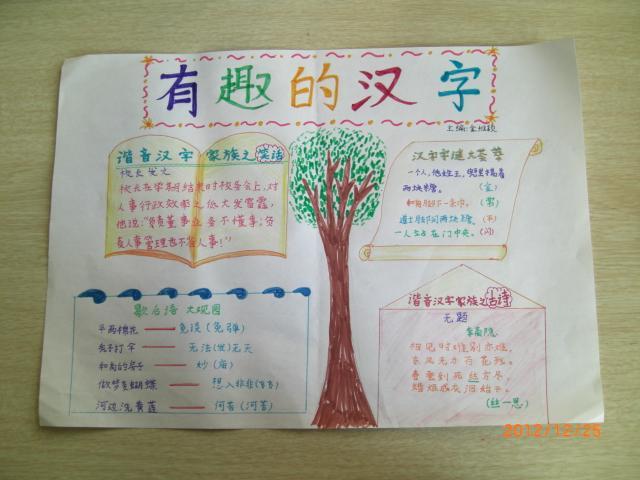 有趣的汉字
主编:金
谐音汉字 家族之笑话
校长发之
校长在学期结束时校务会上,对
人事行政效率之低大发雷霆,
他说:"负责董事业务不懂事,负
责人事管理也不省人事!"
汉字字谜大荟萃
一个人,他姓王,兜里揣着
两块糖。 (金)
和尚脚下一条巾。(常)
通土脚间两块糖。(平)
一人站在门中央。(闪)
歇后语 大观园
平两棉花 —— 免谈(免弹)
秃子打伞 —— 无法(发)无天
和尚的房子 —— 妙(庙)
做梦变蝴蝶 —— 想入非非(飞飞)
河边洗黄莲 —— 何苦(河苦)
谐音汉字家族之古诗
无题
李商隐
相见时难别亦难,
东风无力百花残。
春蚕到死丝方尽,
蜡炬成灰泪始干。
(丝—思)
2012/12/25